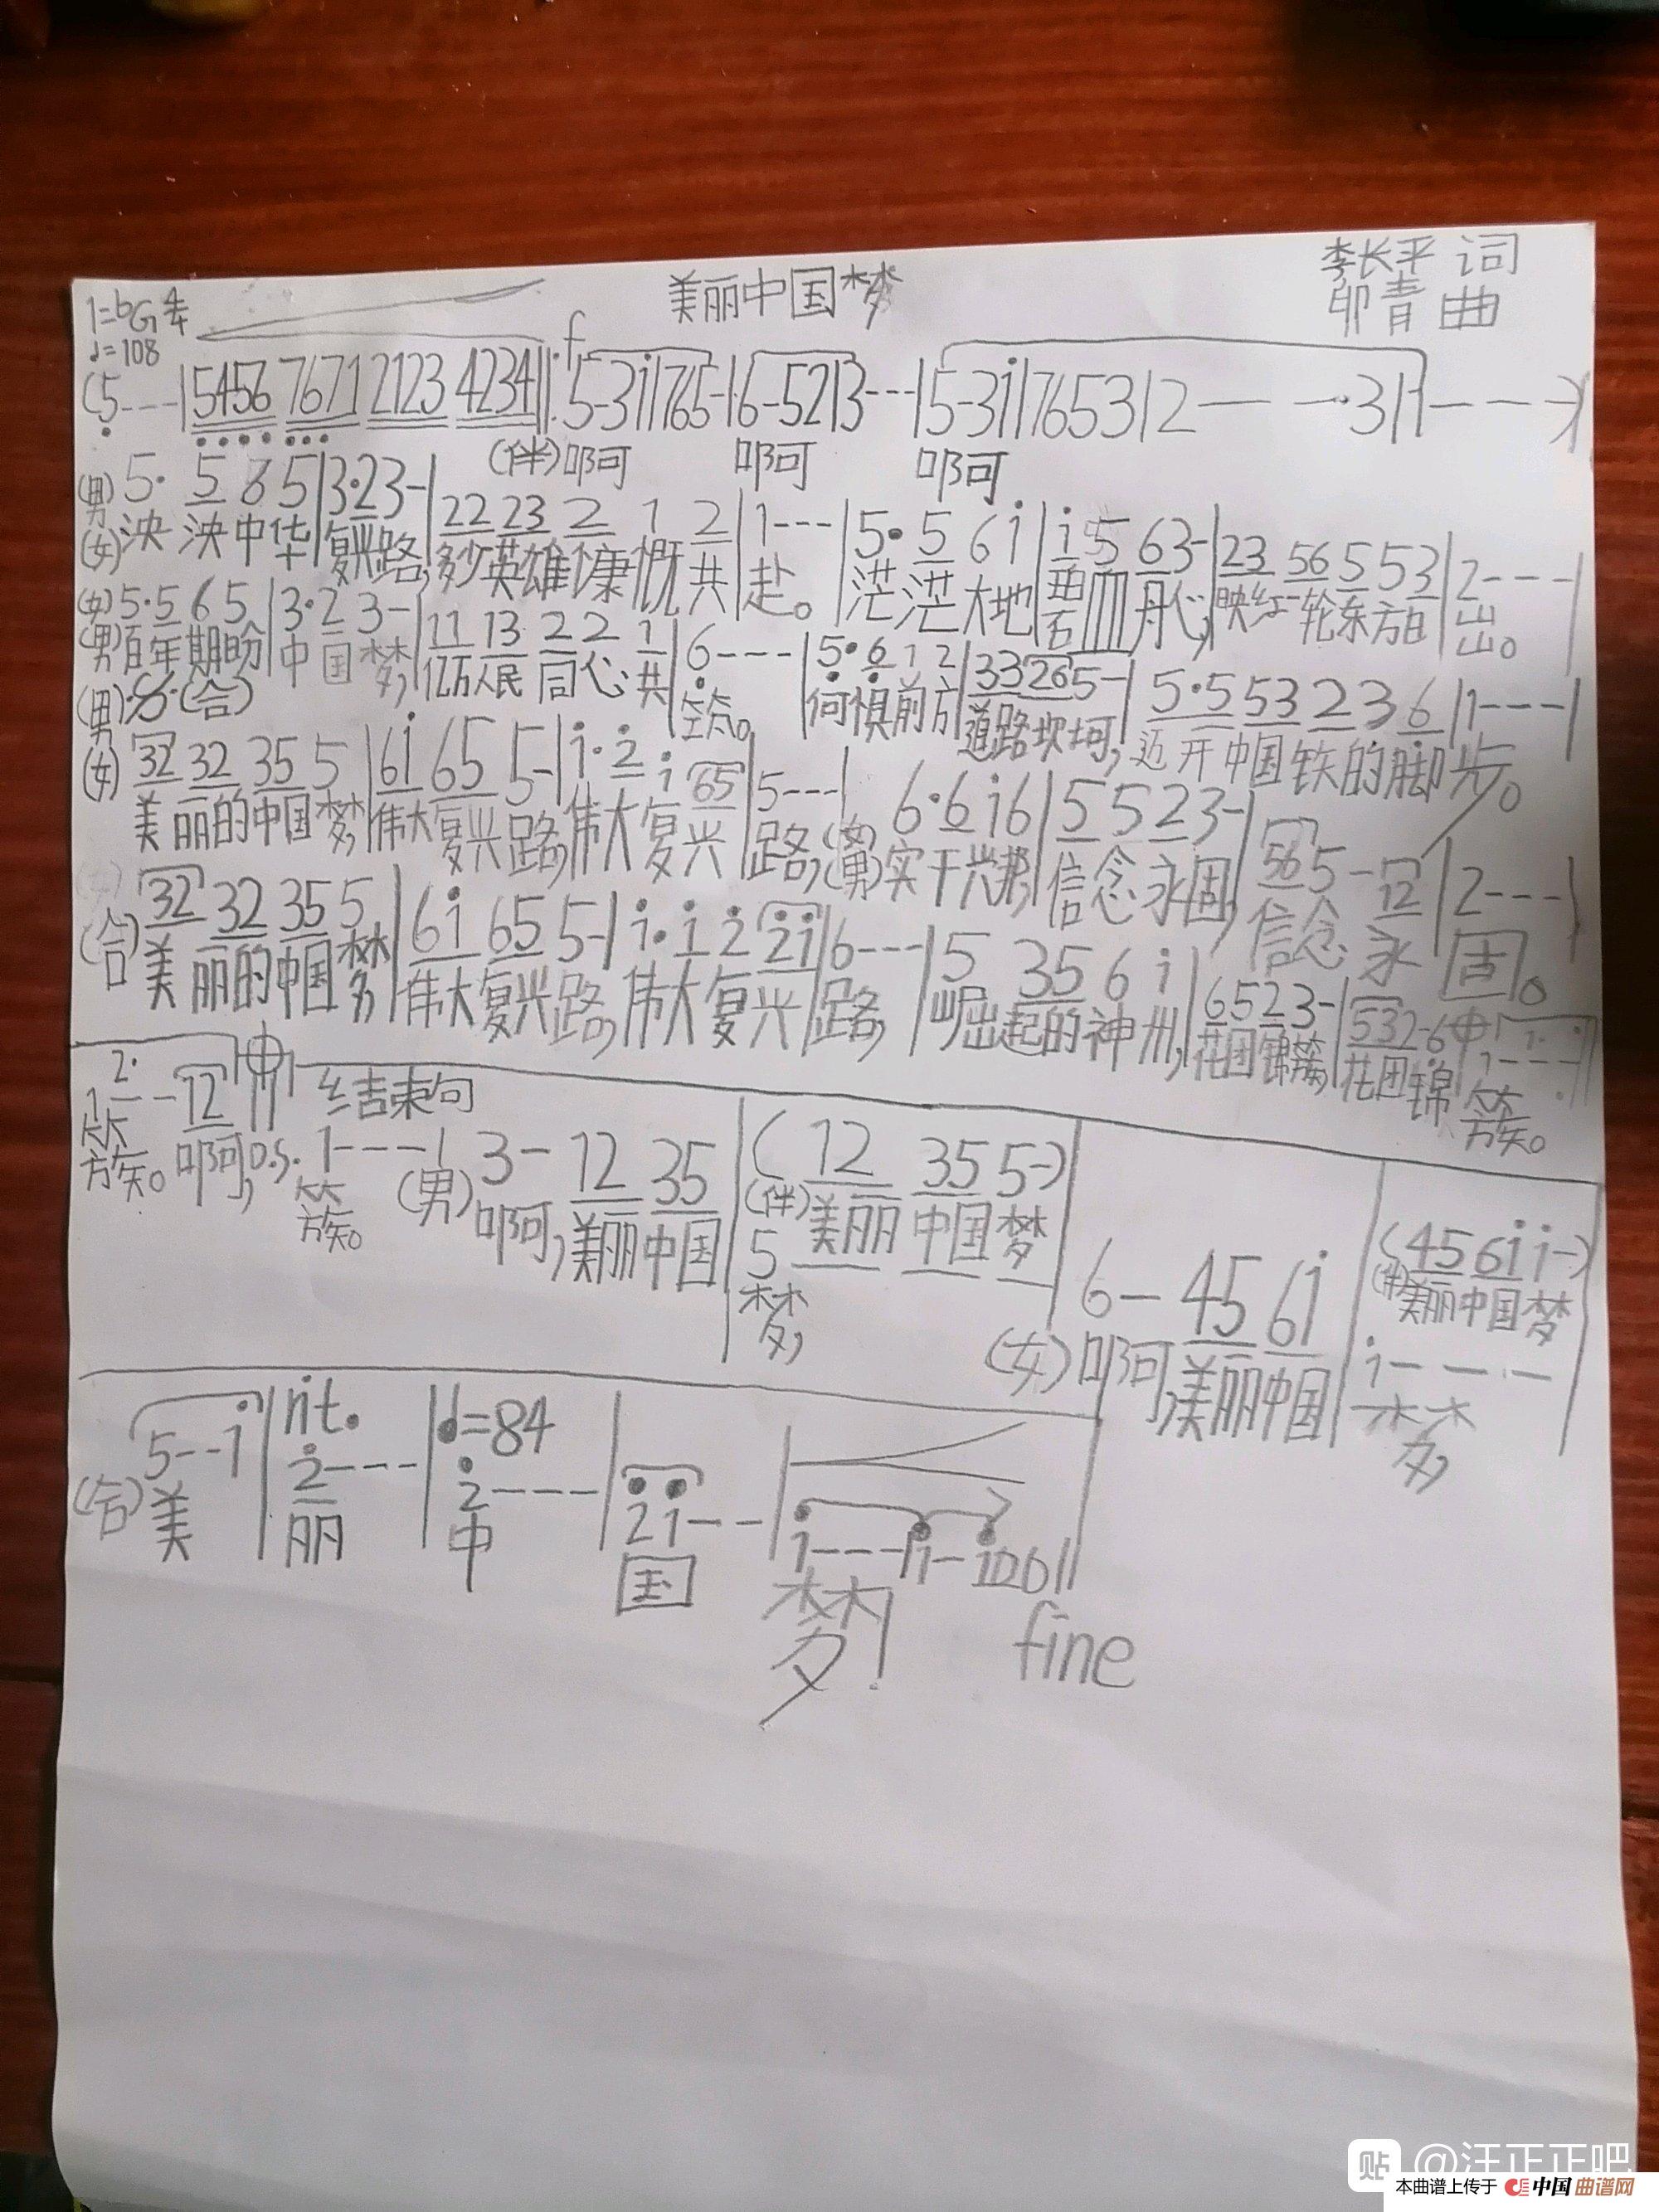 美丽中国梦
李长平 词
1=bG 4/4
卯青 曲
♩=108
f
(5---|5456 7671 2123 4234‖: 5-3i|765-|6-52|3---|5-3i|7653|2---3|1---)
(伴)啊 啊 啊
(男) 5· 5 6 5|3·23-|22 23 2 1 2|1---|5·5 6 i|i 5 63-|23 56 5 53|2---|
(女) 泱泱中华复兴路,多少英雄慷慨共赴。茫茫大地碧血丹心,映红一轮东方日出。
(女) 5·5 6 5|3·2 3-|11 13 2 2 1|6---|5·6 1 2|33 26 5-|5·5 53 2 3 6|1---|
(男) 百年期盼中国梦,亿万人民同心共筑。何惧前方道路坎坷,迈开中国铁的脚步。
(男)·(合)
(女) 32 32 35 5|6i 65 5-|i·2 i 65|5---|6·6 i6|5 5 2 3-|56 5-12|2---|
美丽的中国梦,伟大复兴路,伟大复兴路,(女)(男)实干兴邦,信念永固,信念永固。
(合) 32 32 35 5|6i 65 5-|i·i 2 2i|6---|5 35 6 i|6523-|532-6|1---
美丽的中国梦 伟大复兴路,伟大复兴路,崛起的神州,花团锦簇,花团锦簇。
2.
1--12 结束句
族。啊,D.S. 1---|(男) 3- 12 35|(12 35 5-)
簇。 啊,美丽中国 (伴)美丽中国梦
5---
梦,
6- 45 6i (45 6i i-)
(女)啊,美丽中国 (伴)美丽中国梦
i---
梦,
rit. ♩=84
5--i|2---|2---|2i--|i---|i-i00‖
(合)美丽中国梦!
fine
贴 @汪正正吧
本曲谱上传于 中国曲谱网